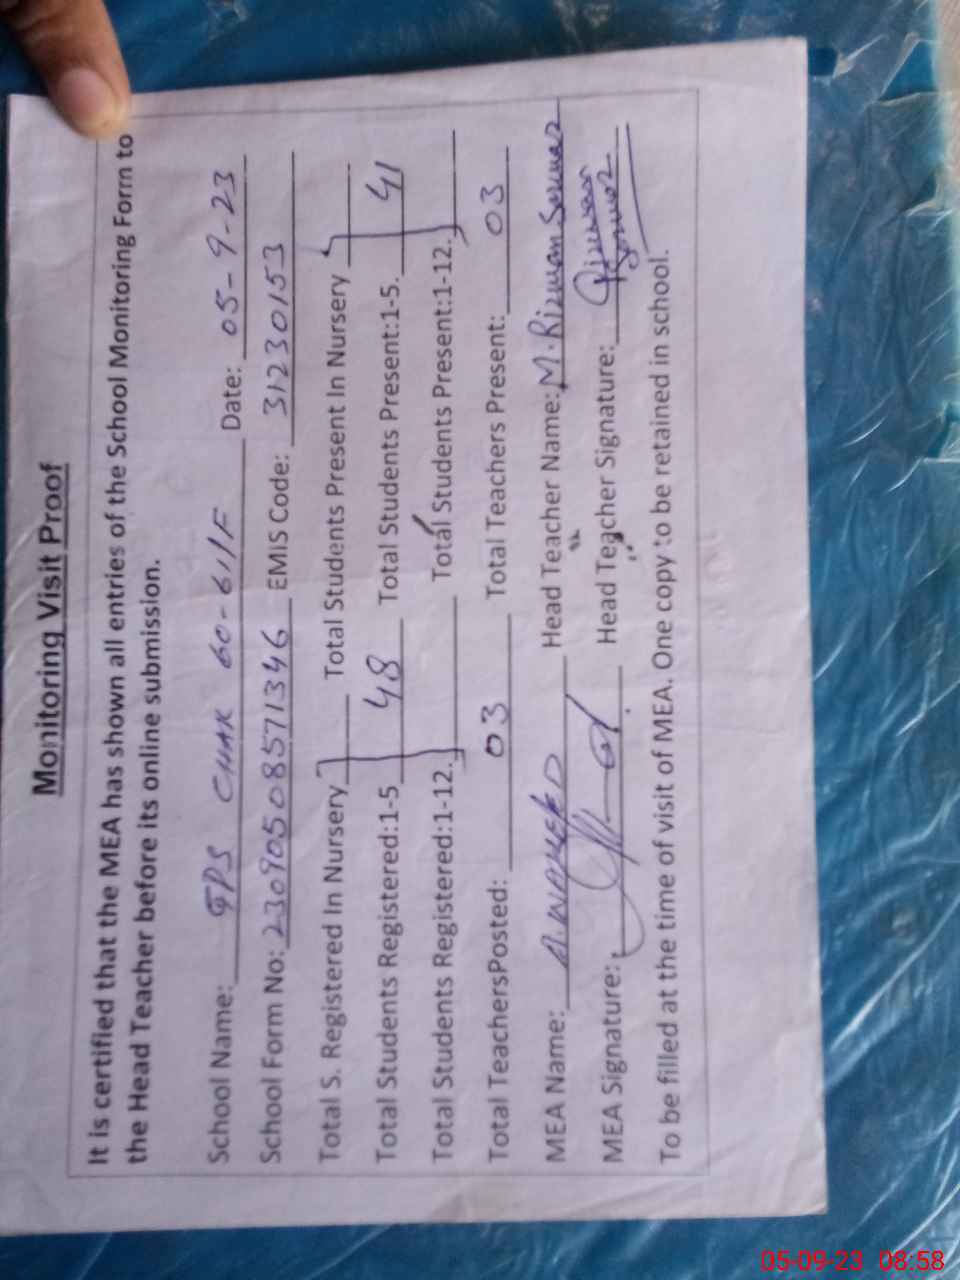 Monitoring Visit Proof
It is certified that the MEA has shown all entries of the School Monitoring Form to
the Head Teacher before its online submission.
School Name: GPS CHAK 60-61/F Date: 05-9-23
School Form No: 23090508571346 EMIS Code: 31230153
Total S. Registered In Nursery Total Students Present In Nursery
Total Students Registered:1-5 48 Total Students Present:1-5. 41
Total Students Registered:1-12. Total Students Present:1-12.
Total TeachersPosted: 03 Total Teachers Present: 03
MEA Name: A. WAHEED Head Teacher Name: M. Rizwan Sarwar
MEA Signature: Head Teacher Signature: Rizwan
Sarwar
To be filled at the time of visit of MEA. One copy to be retained in school.
05-09-23 08:58